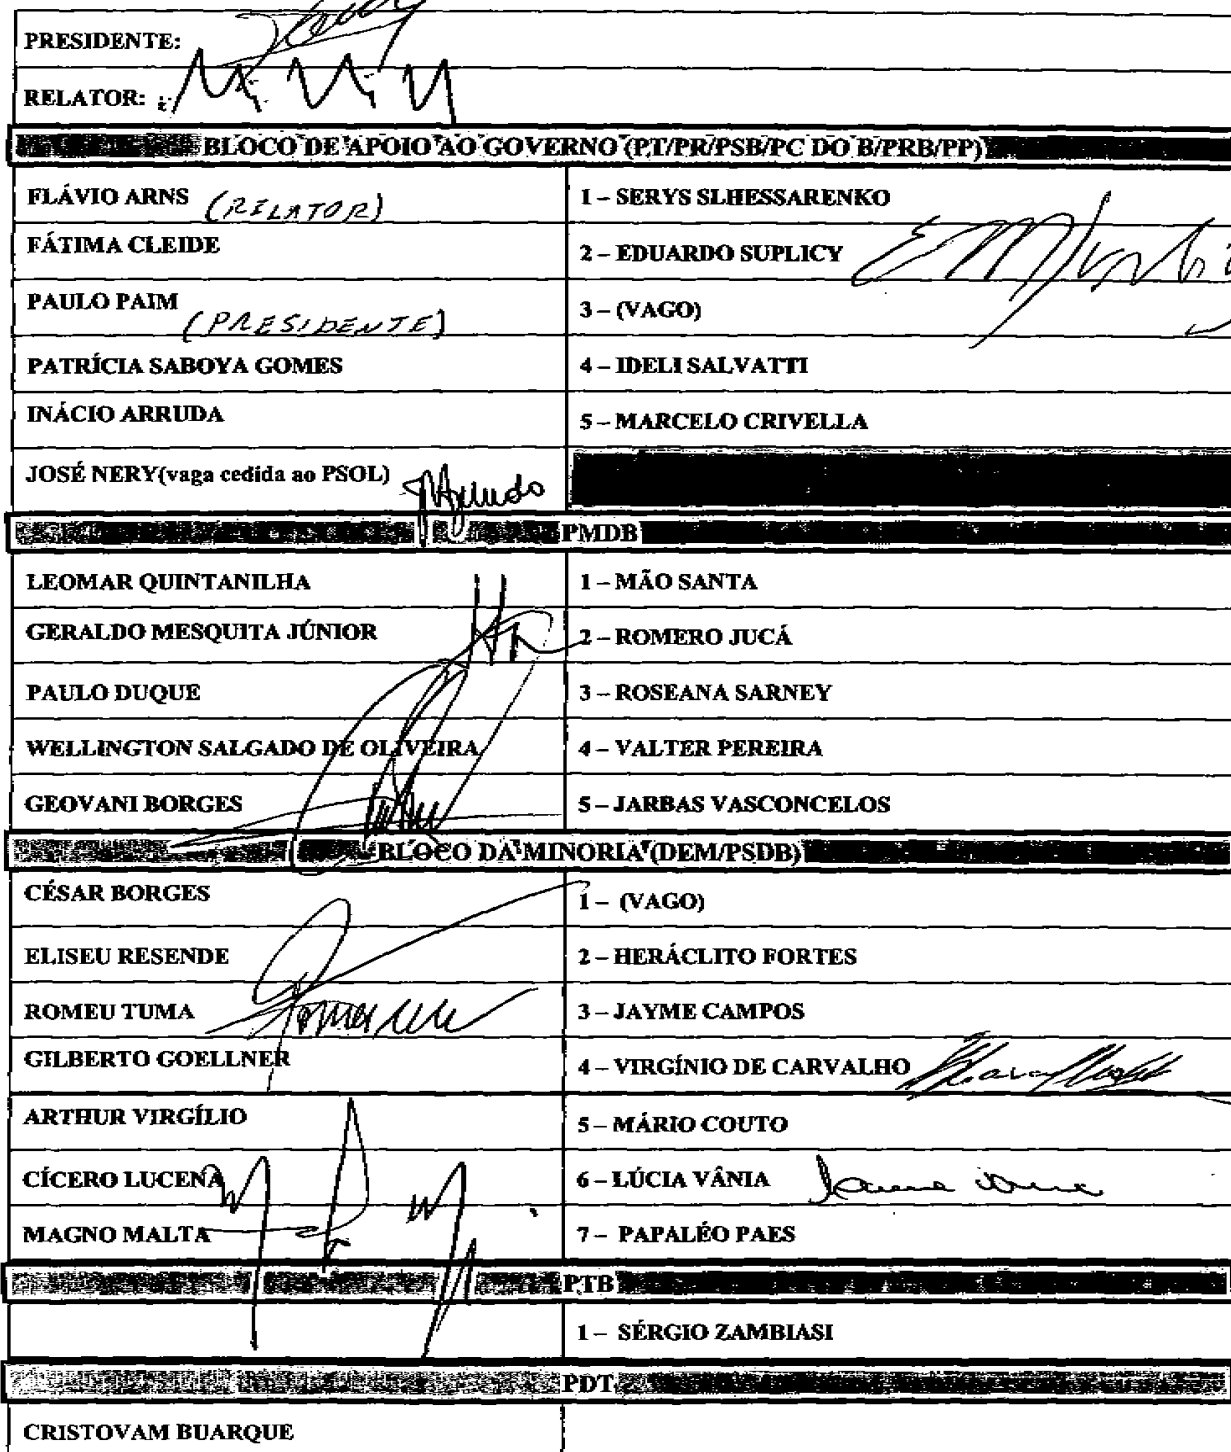 PRESIDENTE:
RELATOR:
BLOCO DE APOIO AO GOVERNO (PT/PR/PSB/PC DO B/PRB/PP)
FLÁVIO ARNS (RELATOR)
1 – SERYS SLHESSARENKO
FÁTIMA CLEIDE
2 – EDUARDO SUPLICY
PAULO PAIM (PRESIDENTE)
3 – (VAGO)
PATRÍCIA SABOYA GOMES
4 – IDELI SALVATTI
INÁCIO ARRUDA
5 – MARCELO CRIVELLA
JOSÉ NERY(vaga cedida ao PSOL)
PMDB
LEOMAR QUINTANILHA
1 – MÃO SANTA
GERALDO MESQUITA JÚNIOR
2 – ROMERO JUCÁ
PAULO DUQUE
3 – ROSEANA SARNEY
WELLINGTON SALGADO DE OLIVEIRA
4 – VALTER PEREIRA
GEOVANI BORGES
5 – JARBAS VASCONCELOS
BLOCO DA MINORIA (DEM/PSDB)
CÉSAR BORGES
1 – (VAGO)
ELISEU RESENDE
2 – HERÁCLITO FORTES
ROMEU TUMA
3 – JAYME CAMPOS
GILBERTO GOELLNER
4 – VIRGÍNIO DE CARVALHO
ARTHUR VIRGÍLIO
5 – MÁRIO COUTO
CÍCERO LUCENA
6 – LÚCIA VÂNIA
MAGNO MALTA
7 – PAPALÉO PAES
PTB
1 – SÉRGIO ZAMBIASI
PDT
CRISTOVAM BUARQUE